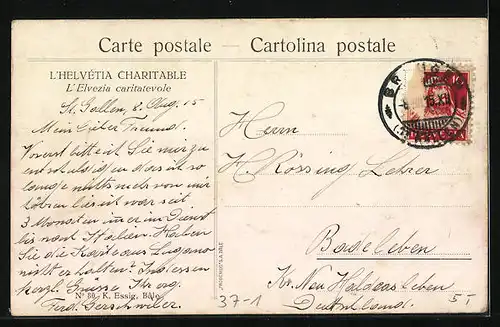 Carte postale — Cartolina postale
L'HELVÉTIA CHARITABLE
L'Elvezia caritatevole
St. Gallen, 8. Aug. 15
Mein lieber Freund.
Vorerst bitte ich Sie mir zu
entschuldigen dass ich so
lange nichts mehr von mir
hören liess ich war seit
3 Monaten immer im Dienst
bis nach Italien. Haben
Sie die Karte aus Lugano
nicht erhalten? Indessen
herzl. Grüsse Ihr erg.
Ferd. Gerschwiler
Nº 80 - K. Essig, Bâle
Herrn
H. Rössing Lehrer
Badeleben
Kr. Neu Haldensleben
Deutschland.
37-1
5T